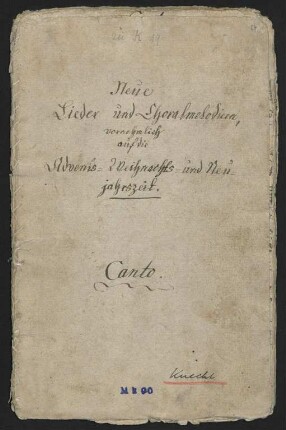 Neue
Lieder und Choralmelodieen,
vornehmlich
auf die
Advents= Weihnachts= und Neu
jahrszeit.
Canto.
Knecht